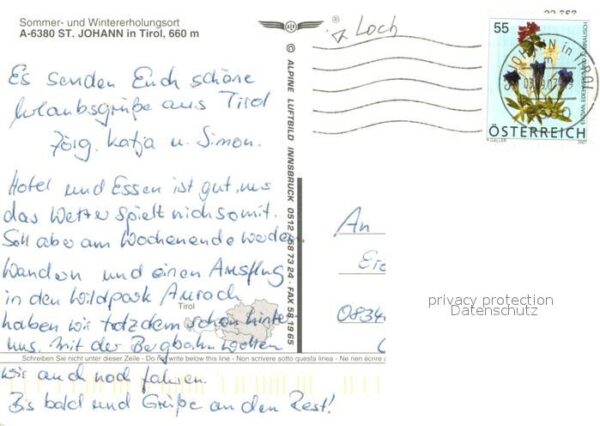 Sommer- und Wintererholungsort
A-6380 ST. JOHANN in Tirol, 660 m
Loch
Es senden Euch schöne
Urlaubsgrüße aus Tirol
Jörg, Katja u. Simon.
Hotel und Essen ist gut, nur
das Wetter spielt nich so mit.
Soll aber am Wochenende werden.
Wandern und einen Ausflug
in den Wildpark Aurach
haben wir trotzdem schon hinter
uns. Mit der Bergbahn wollen
wir auch noch fahren.
Bis bald und Grüße an den Rest!
Tirol
Schreiben Sie nicht unter dieser Zeile - Do not write below this line - Non scrivere sotto questa linea - Ne rien écrire
© ALPINE LUFTBILD INNSBRUCK 0512 / 58 73 24 · FAX 58 19 65
55
ÖSTERREICH
2007
An
0834
privacy protection
Datenschutz